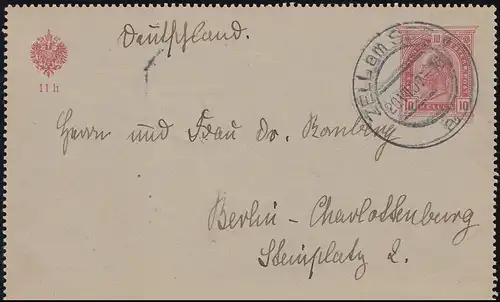 Deutschland.
ZELL am S
10 10
11 h
10 10
Herrn und Frau Dr. Romberg
Berlin - Charlottenburg
Steinplatz 2.